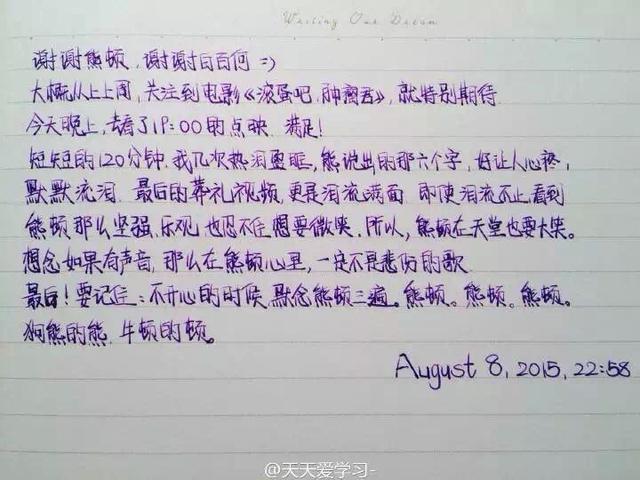 Writing Our Dream
谢谢熊顿,谢谢白百何 =)
大概从上上周,关注到电影《滚蛋吧,肿瘤君》,就特别期待.
今天晚上,去看了19:00的点映.满足!
短短的120分钟.我几次热泪盈眶,熊说出的那六个字,好让人心疼,
默默流泪.最后的葬礼视频,更是泪流满面.即使泪流不止,看到
熊顿那么坚强.乐观.也忍不住想要微笑.所以,熊顿在天堂也要大笑。
想念如果有声音,那么在熊顿心里,一定不是悲伤的歌.
最后!要记住:不开心的时候,默念熊顿三遍。熊顿。熊顿。熊顿。
狗熊的熊.牛顿的顿。
August 8, 2015, 22:58
@天天爱学习-